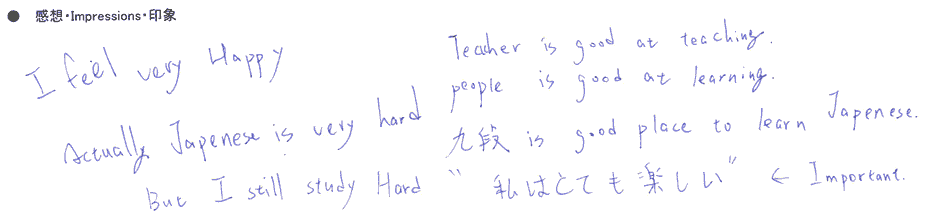 ● 感想・Impressions・印象
I feel very Happy
Actually Japenese is very hard
But I still study Hard
Teacher is good at teaching.
people is good at learning.
九段 is good place to learn Japenese.
"私はとても楽しい" ← Important.